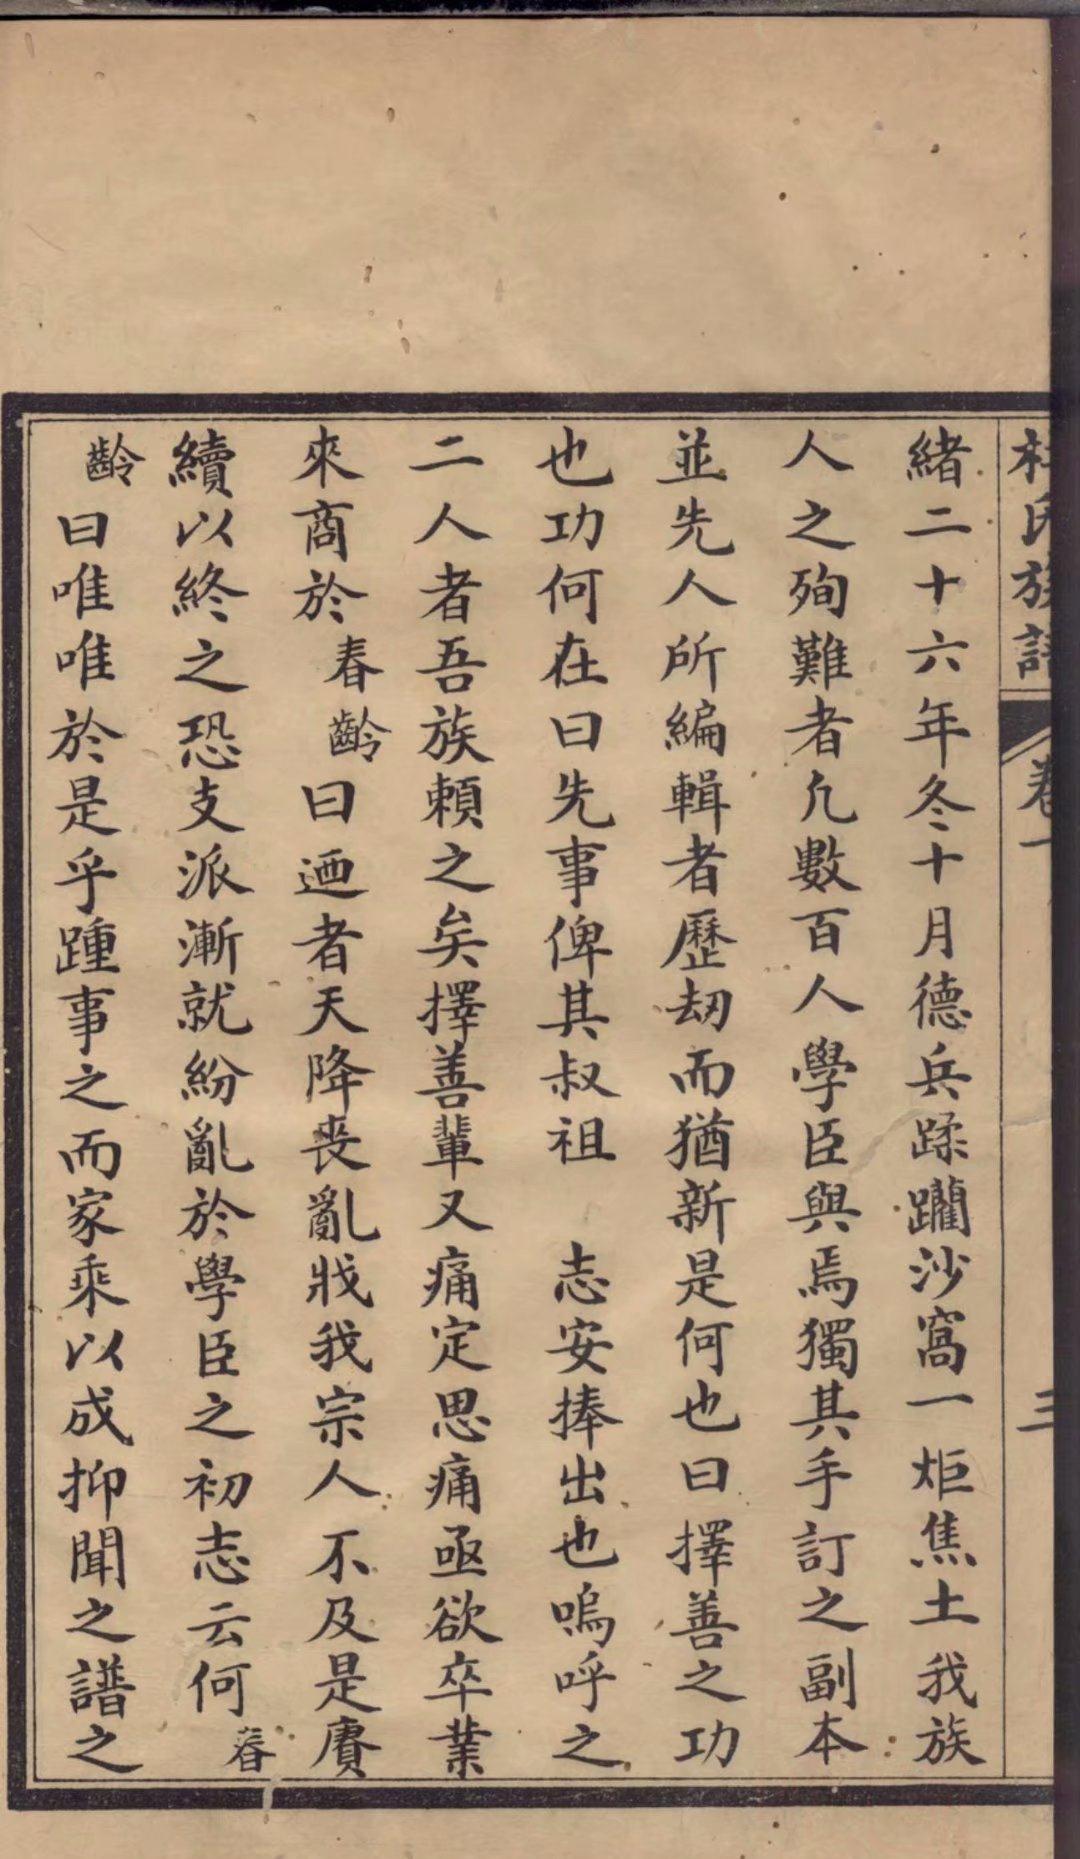 杜氏族譜 卷一 三
緒二十六年冬十月德兵蹂躪沙窩一炬焦土我族
人之殉難者凢數百人學臣與焉獨其手訂之副本
並先人所編輯者歷刼而猶新是何也曰擇善之功
也功何在曰先事俾其叔祖 志安捧出也嗚呼之
二人者吾族賴之矣擇善輩又痛定思痛亟欲卒業
來商於春齡曰迺者天降喪亂戕我宗人不及是賡
續以終之恐支派漸就紛亂於學臣之初志云何春
齡曰唯唯於是乎踵事之而家乘以成抑聞之譜之